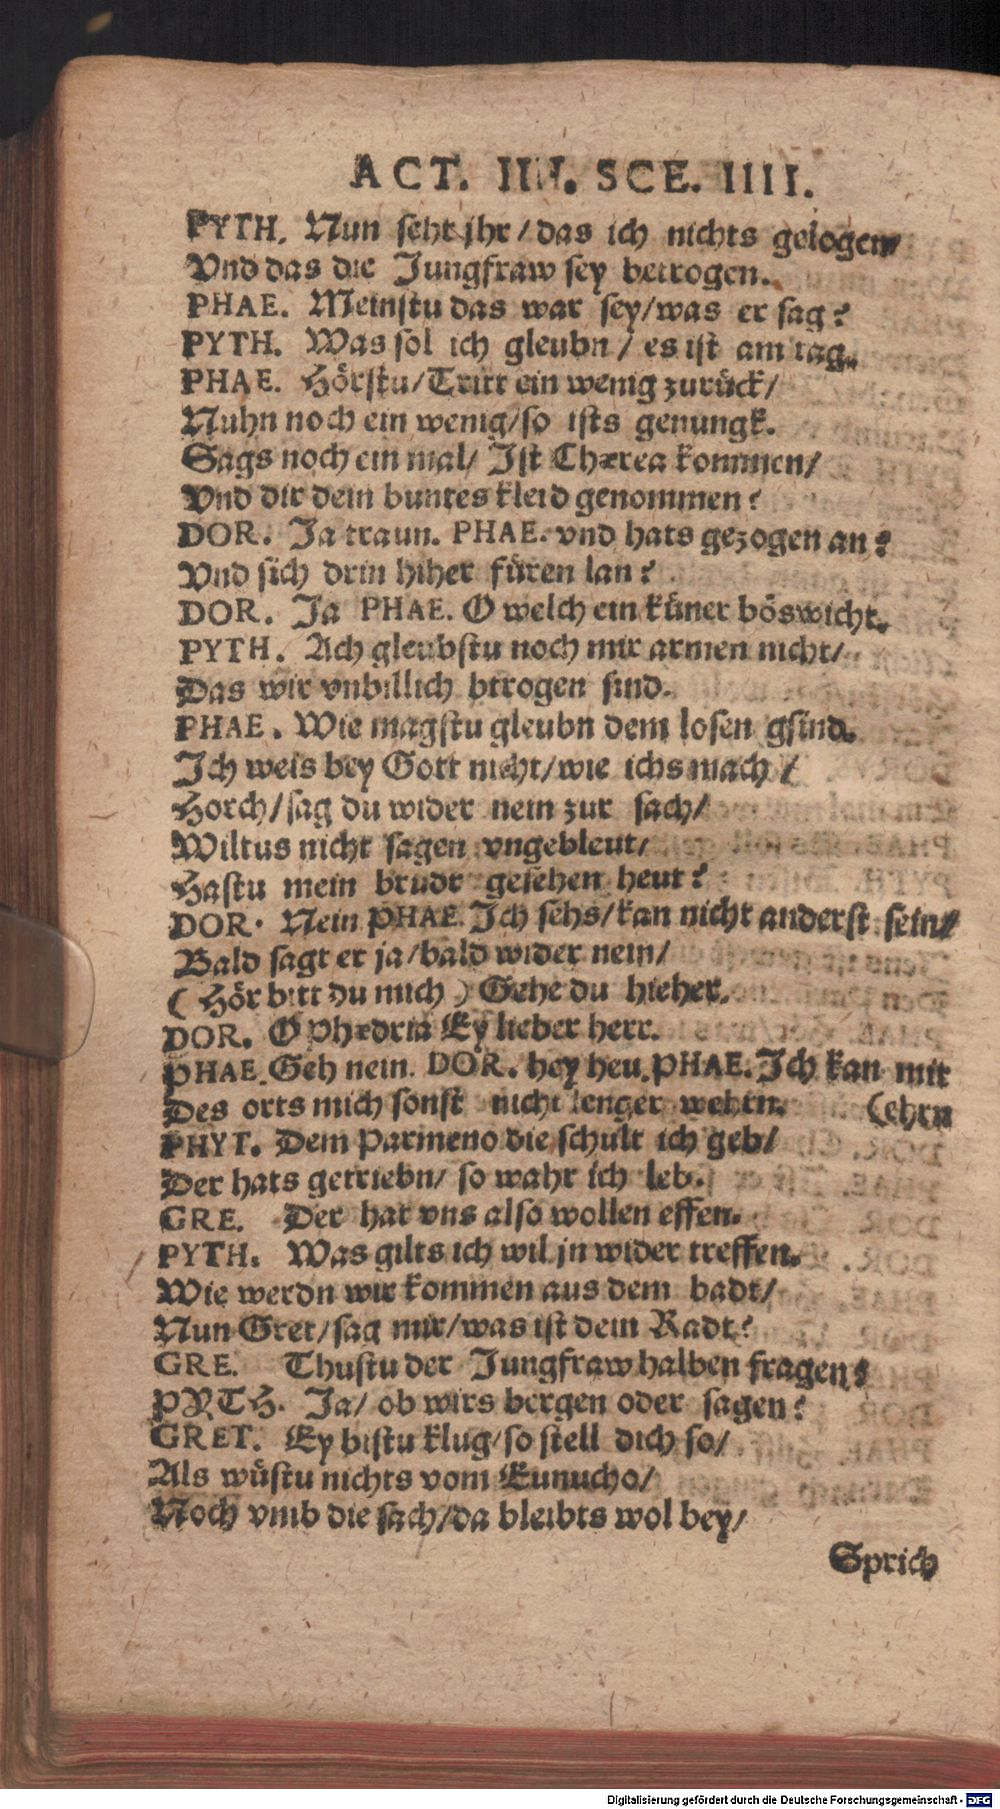 ACT. IIII. SCE. IIII.
PYTH. Nun seht jhr / das ich nichts gelogen /
Vnd das die Jungfraw sey betrogen.
PHAE. Meinstu das war sey / was er sag?
PYTH. Was sol ich gleubn / es ist am tag.
PHAE. Hörstu / Tritt ein wenig zurück /
Nuhn noch ein wenig / so ists genungk.
Sags noch ein mal / Ist Chærea kommen /
Vnd dir dein buntes kleid genommen?
DOR. Ja traun. PHAE. vnd hats gezogen an?
Vnd sich drin hiher füren lan?
DOR. Ja PHAE. O welch ein küner böswicht.
PYTH. Ach gleubstu noch mir armen nicht /
Das wir vnbillich btrogen sind.
PHAE. Wie magstu gleubn dem losen gsind.
Ich weis bey Gott nicht / wie ichs mach /
Horch / sag du wider nein zur sach /
Wiltus nicht sagen vngebleut /
Hastu mein brudr gesehen heut?
DOR. Nein PHAE. Ich sehs / kan nicht anderst sein /
Bald sagt er ja / bald wider nein /
( Hör bitt du mich ) Gehe du hieher.
DOR. O Phædria Ey lieber herr.
PHAE. Geh nein. DOR. hey heu. PHAE. Ich kan mit
Des orts mich sonst nicht lenger wehrn. (ehrn
PHYT. Dem Parmeno die schult ich geb /
Der hats getriebn / so wahr ich leb.
GRE. Der hat vns also wollen effen.
PYTH. Was gilts ich wil jn wider treffen.
Wie werdn wir kommen aus dem badt /
Nun Gret / sag mir / was ist dein Radt?
GRE. Thustu der Jungfraw halben fragen?
PYTH. Ja / ob wirs bergen oder sagen?
GRET. Ey bistu klug / so stell dich so /
Als wüstu nichts vom Eunucho /
Noch vmb die sach / da bleibts wol bey /
Sprich
Digitalisierung gefördert durch die Deutsche Forschungsgemeinschaft - DFG